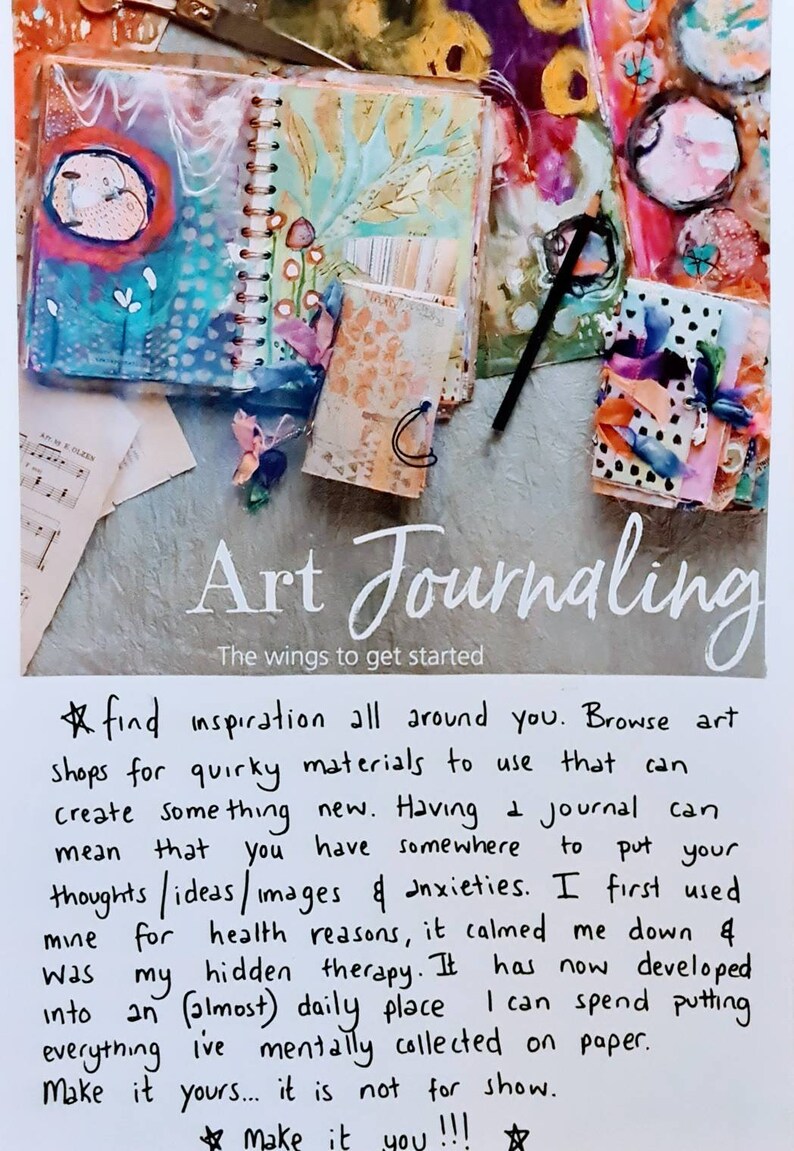 Arr. by E OLZEN
Art Journaling
The wings to get started
☆ find inspiration all around you. Browse art
shops for quirky materials to use that can
create something new. Having a journal can
mean that you have somewhere to put your
thoughts/ideas/images & anxieties. I first used
mine for health reasons, it calmed me down &
was my hidden therapy. It has now developed
into an (almost) daily place I can spend putting
everything i've mentally collected on paper.
Make it yours... it is not for show.
☆ Make it you!!! ☆